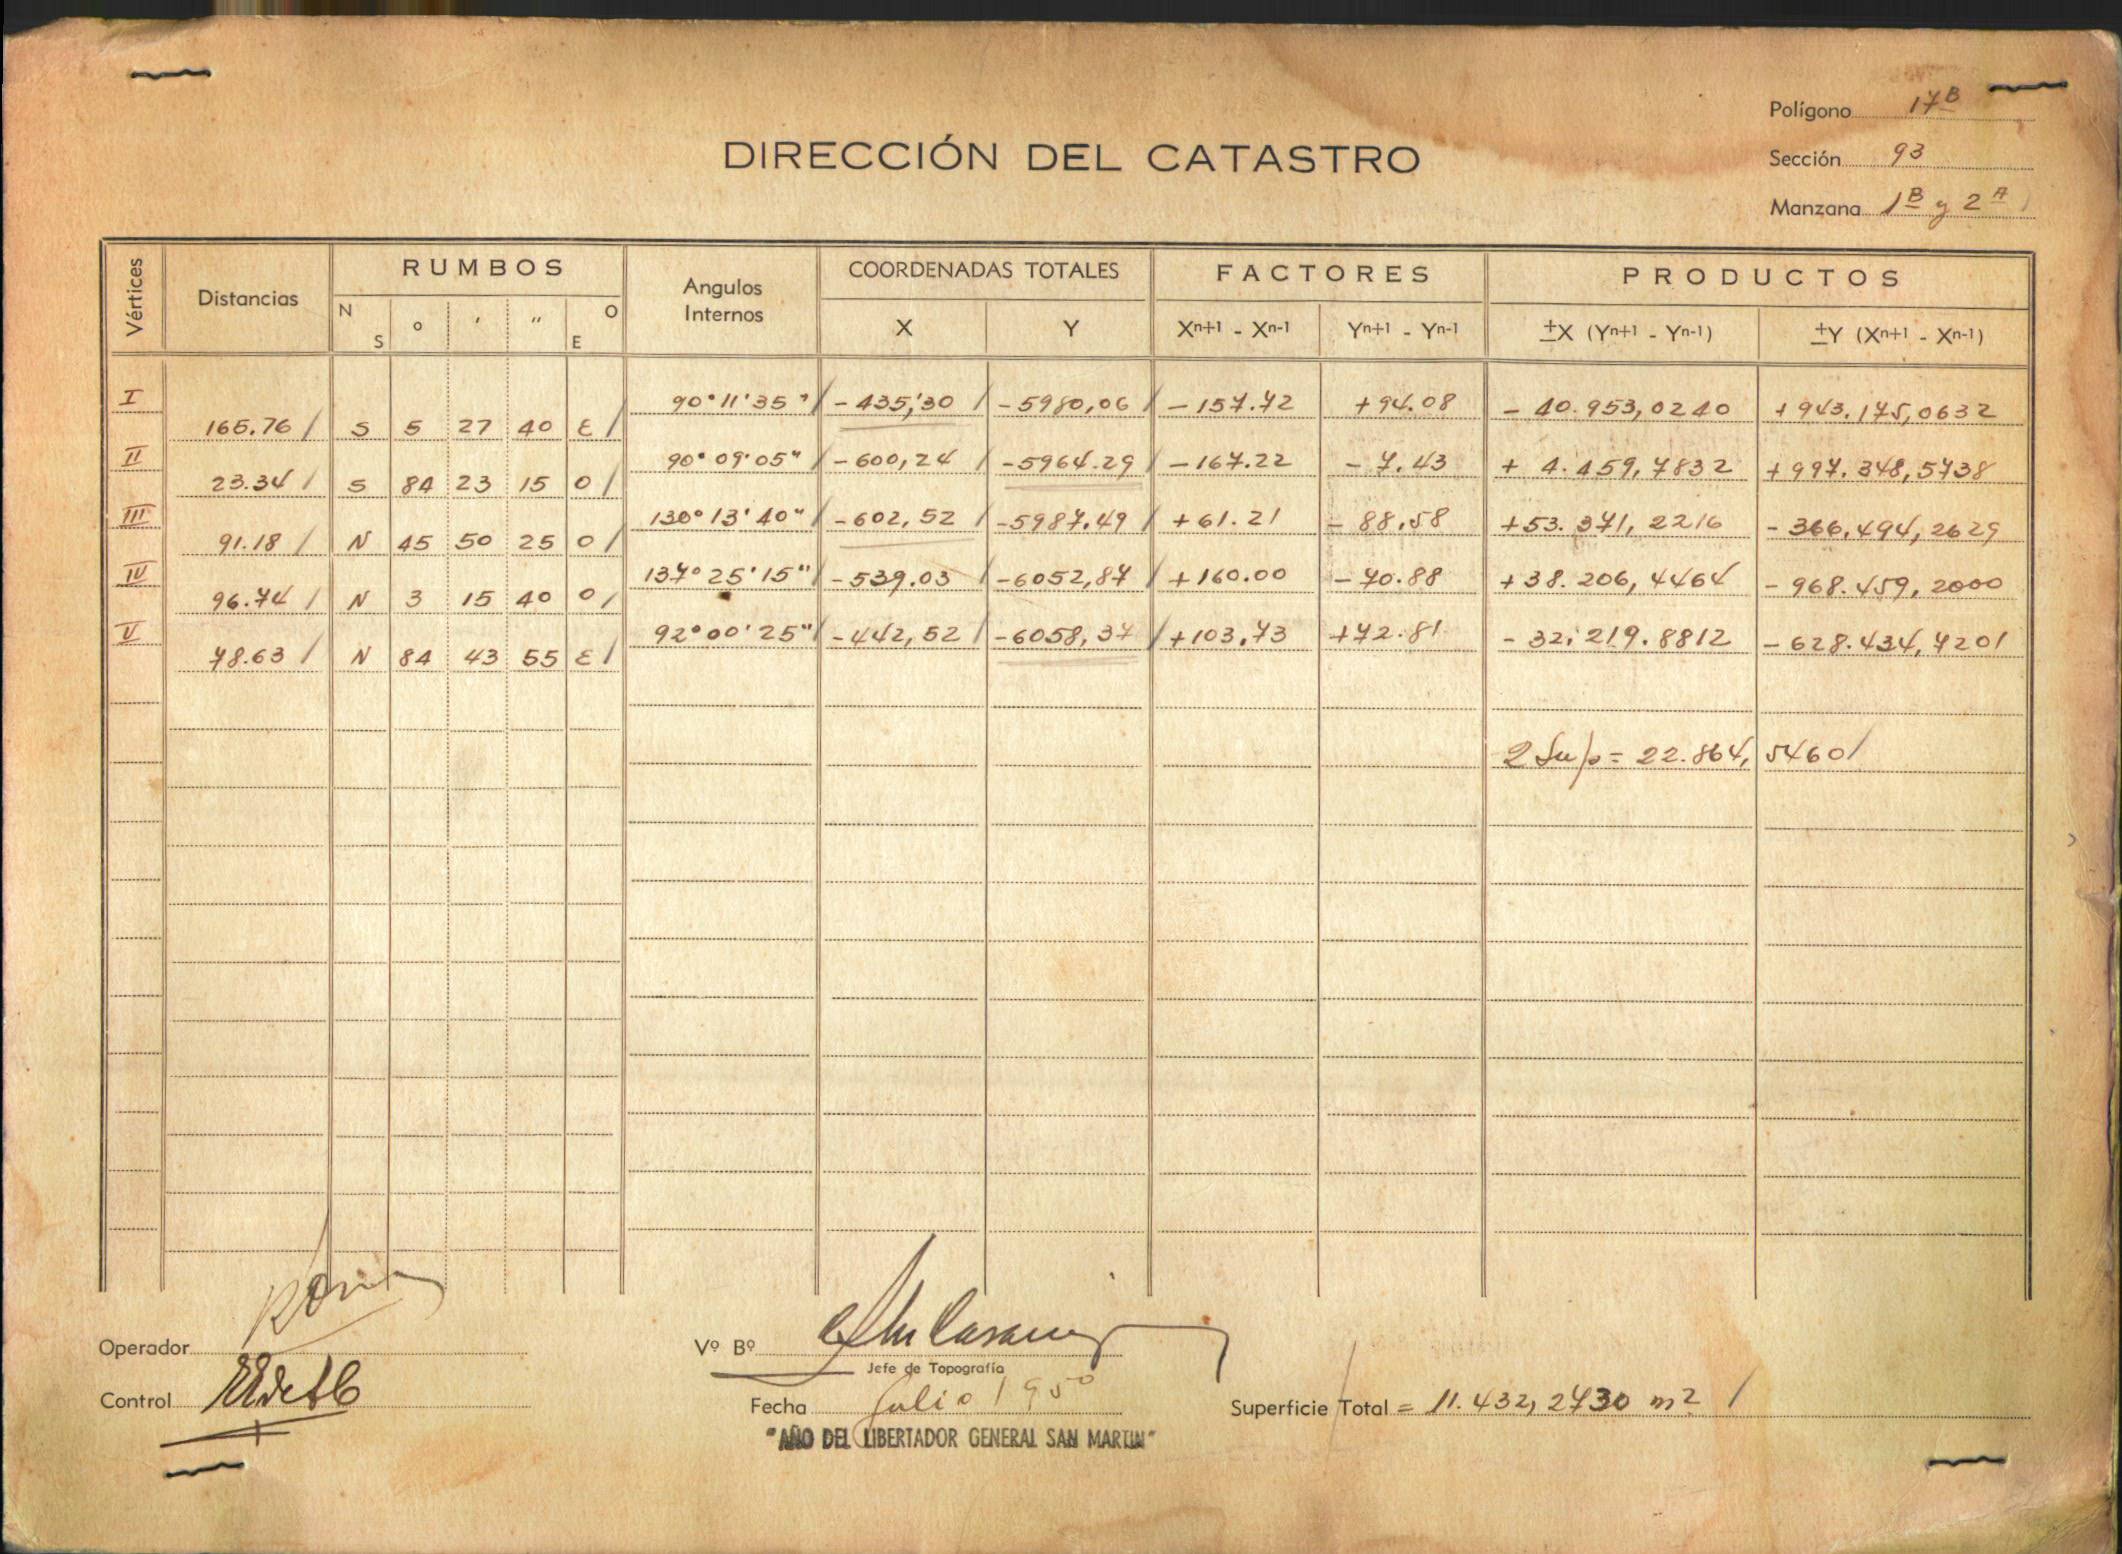 Polígono 17B
DIRECCIÓN DEL CATASTRO
Sección 93
Manzana 1B y 2A
Vértices Distancias RUMBOS Angulos Internos COORDENADAS TOTALES FACTORES PRODUCTOS
N S o ' " O E X Y Xn+1 - Xn-1 Yn+1 - Yn-1 ±X (Yn+1 - Yn-1) ±Y (Xn+1 - Xn-1)
I 90°11'35" -435,30 -5980,06 -157.72 +94.08 -40.953,0240 +943.175,0632
165.76 S 5 27 40 E
II 90°09'05" -600,24 -5964.29 -167.22 -7.43 +4.459,7832 +997.348,5738
23.34 S 84 23 15 O
III 130°13'40" -602,52 -5987.49 +61.21 -88,58 +53.371,2216 -366,494,2629
91.18 N 45 50 25 O
IV 137°25'15" -539.03 -6052,87 +160.00 -70.88 +38.206,4464 -968.459,2000
96.74 N 3 15 40 O
V 92°00'25" -442,52 -6058,37 +103,73 +72.81 -32.219.8812 -628.434,7201
78.63 N 84 43 55 E
2 Sup = 22.864,5460
Operador
Vº Bº
Jefe de Topografía
Control
Fecha Julio 1950
Superficie Total = 11.432,2730 m2
"AÑO DEL LIBERTADOR GENERAL SAN MARTIN"